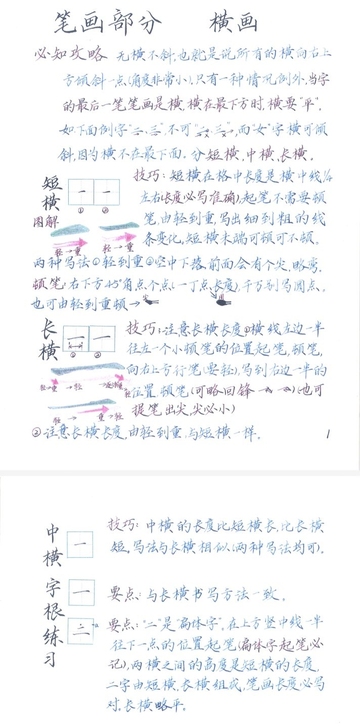 笔画部分 横画
必知攻略 无横不斜,也就是说所有的横向右上
方倾斜一点(角度非常小),只有一种情况例外,当字
的最后一笔笔画是横,横在最下方时,横要"平"。
如下面例字"二、三",不可"二、三",而"女"字横可倾
斜,因为横不在最下面。分短横,中横,长横。
短横
① ②
图解
轻→重 轻→重
技巧:短横在格中长度是横中线
左右(长度必写准确),起笔不需要顿
笔,由轻到重写出细到粗的线
条变化,短横末端可顿可不顿。
两种写法①轻到重②空中下落,前面会有个尖,略弯,
顿笔:右下方45°角点个点(一丁点长度),千万别写圆点。
也可由轻到重顿→
长横
技巧:①注意长横长度②横线左边一半
往左一个小顿笔的位置起笔,顿笔,
向右上方行笔(要轻),写到右边一半的
位置,顿笔(可略回锋 也可
提笔出尖,尖必小)
②注意长横长度,由轻到重,与短横一样。
1
中横
技巧:中横的长度比短横长,比长横
短,写法与长横相似(两种写法均可)。
字根练习
要点:与长横书写方法一致。
要点:"二"是扁体字,在上方竖中线一半
往下一点的位置起笔(扁体字起笔必
记),两横之间的高度是短横的长度,
二字由短横,长横组成,笔画长度必写
对,长横略平。